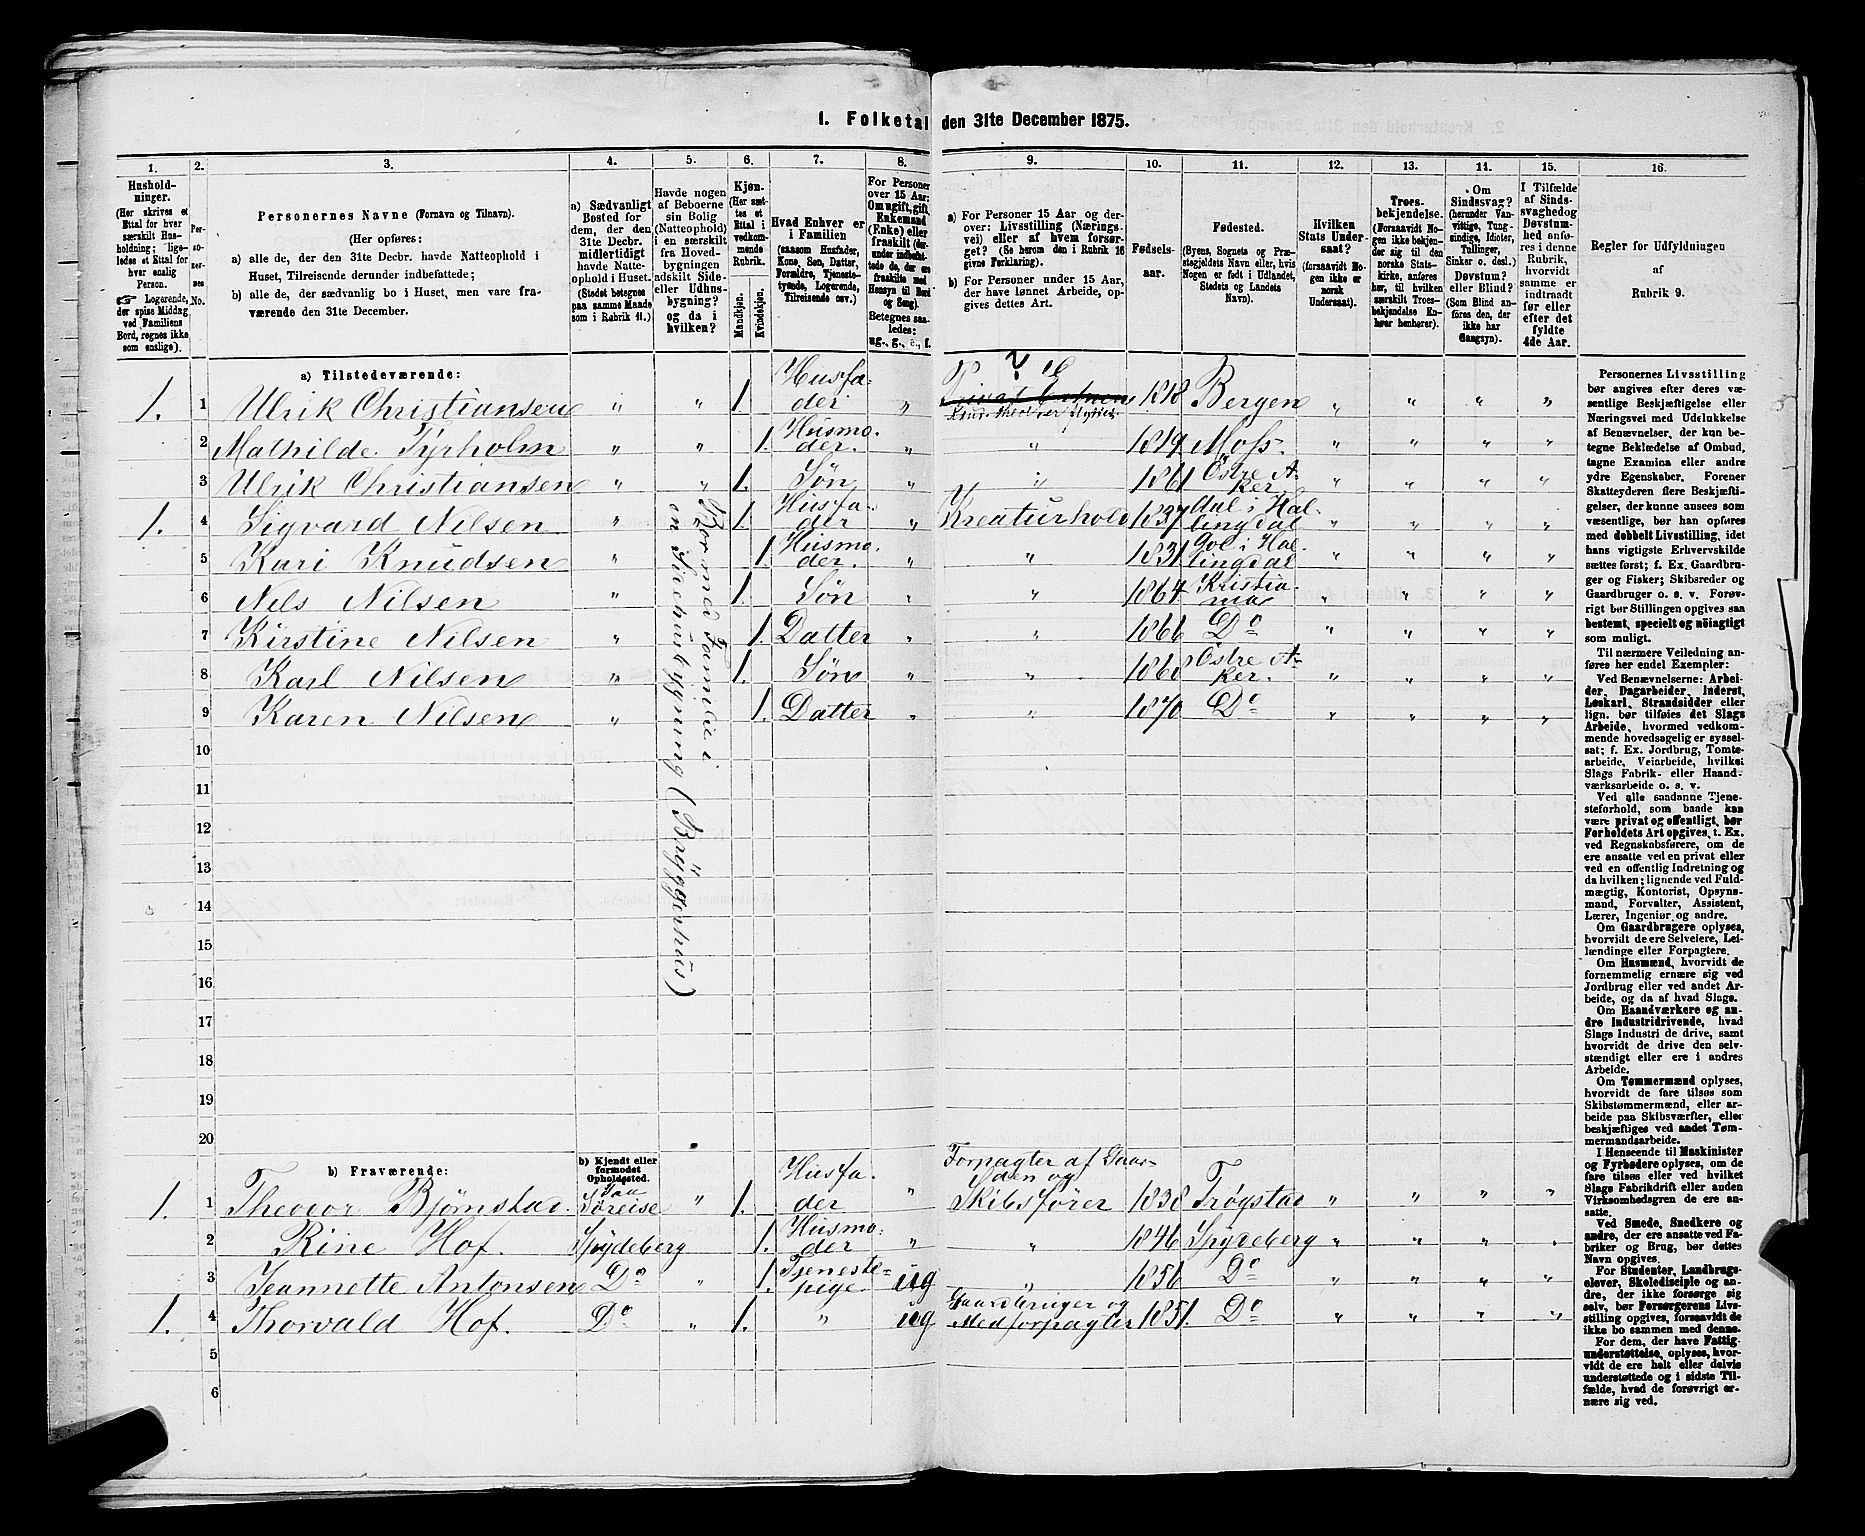 1. Folketal den 31te December 1875.
1. 2. 3. 4. 5. 6. 7. 8. 9. 10. 11. 12. 13. 14. 15. 16.
Hushold-
ninger.
(Her skrives et
Ettal for hver
særskilt Hus-
holdning; lige-
ledes et Ettal for
hver enslig
Person.
Logerende,
der spise Middag
ved Familiens
Bord, regnes ikke
som enslige).
Personernes Navne (Fornavn og Tilnavn).
(Her opføres:
a) alle de, der den 31te Decbr. havde Natteophold i
Huset, Tilreisende derunder indbefattede;
b) alle de, der sædvanlig bo i Huset, men vare fra-
værende den 31te December.
a) Sædvanligt
Bosted for
dem, der den
31te Decbr.
midlertidigt
havde Natte-
ophold i Huset.
(Stedet betegnes
paa samme Maade
som i Rubrik 11.)
Havde nogen
af Beboerne
sin Bolig
(Natteophold)
i en særskilt
fra Hoved-
bygningen
adskilt Side-
eller Udhus-
bygning?
og da i
hvilken?
Kjøn.
(Her sæt-
tes et
Ettal i
vedkom-
mende
Rubrik.
Mandkjøn.
Kvindekjøn.
Hvad Enhver er
i Familien
(saasom Husfader,
Kone, Søn, Datter,
Forældre, Tjeneste-
tyende, Logerende,
Tilreisende osv.)
For Personer
over 15 Aar:
Om ugift, gift,
Enkemand
(Enke) eller
fraskilt
Betegnes saa-
ledes:
ug., g., e., f.
a) For Personer 15 Aar og der-
over: Livsstilling (Nærings-
vei) eller af hvem forsør-
get? (Se herom den i Rubrik 16
givne Forklaring).
b) For Personer under 15 Aar,
der have lønnet Arbeide, op-
gives dettes Art.
Fødsels-
aar.
Fødested.
(Byens, Sognets og Præ-
stegjeldets Navn eller, hvis
Nogen er født i Udlandet,
Stedets og Landets
Navn).
Hvilken
Stats Under-
saat?
(forsaavidt No-
gen ikke er
norsk
Undersaat).
Troes-
bekjendelse.
(Forsaavidt No-
gen ikke bekjen-
der sig til den
norske Stats-
kirke, anføres
her, til hvilken
særskilt Troes-
bekjendelse En-
hver henhører).
Om
Sindssvag?
(herunder Van-
vittige, Tung-
sindige, Idioter,
Tullinger,
Sinker o. desl.)
Døvstum?
eller Blind?
(Som Blind an-
føres den, der
ikke har
Gangsyn).
I Tilfælde
af Sinds-
svaghed og
Døvstum-
hed anfø-
res i denne
Rubrik,
hvorvidt
samme er
indtraadt
før eller
efter det
fyldte
4de Aar.
Regler for Udfyldningen
af
Rubrik 9.
a) Tilstedeværende:
1. 1 Ulrik Christiansen " " 1. Husfader " 1818 Bergen " " " "
2 Mathilde Tyrholm " " 1. Husmoder. " " 1819 Moss. " " " "
3 Ulrik Christiansen " " 1. Søn " " 1861 Østre Aker " " " "
1. 4 Sigvard Nilsen " 1. Husfader " Kreaturhold 1837 Aal i Hallingdal " " " "
5 Kari Knudsen " 1. Husmoder. " " 1831 Gol i Hallingdal " " " "
6 Nils Nilsen " 1. Søn " " 1864 Kristiania " " " "
7 Kirstine Nilsen " 1. Datter " " 1866 Do " " " "
8 Karl Nilsen " 1. Søn " " 1868 Østre Aker. " " " "
9 Karen Nilsen " 1. Datter " " 1870 Do " " " "
Bor med Familie i
en Sidehusbygning (Bryggerhus)
10
11
12
13
14
15
16
17
18
19
20
b) Fraværende:
b) Kjendt eller
formodet
Opholdssted.
1. 1 Theodor Bjørnstad. Paa Søreise " 1. Husfader " Forpagter af Gaarden og Skibsfører 1838 Trøgstad " " " "
2 Rine Hof. Spydeberg 1. Husmoder " " 1846 Spydeberg " " " "
3 Jeannette Antonsen Do " 1. Tjenestepige ug " 1856 Do " " " "
1. 4 Thorvald Hof. Do " 1. " ug Gaardbruger og Medforpagter 1851. Do " " " "
5
6
Personernes Livsstilling
bør angives efter deres væ-
sentlige Beskjæftigelse eller
Næringsvei med Udelukkelse
af Benævnelser, der kun be-
tegne Beklædelse af Ombud,
tagne Examina eller andre
ydre Egenskaber. Forener
Skatteyderen flere Beskjæfti-
gelser, der kunne ansees som
væsentlige, bør han opføres
med dobbelt Livsstilling, idet
hans vigtigste Erhvervskilde
sættes først; f. Ex. Gaardbru-
ger og Fisker; Skibsreder og
Gaardbruger o. s. v. Forøv-
rigt bør Stillingen opgives saa
bestemt, specielt og nøiagtigt
som muligt.
Til nærmere Veiledning an-
føres her endel Exempler:
Ved Benævnelserne: Arbei-
der, Dagarbeider, Inderst,
Løskarl, Strandsidder eller
lign. bør tilføies det Slags
Arbeide, hvormed vedkom-
mende hovedsagelig er syssel-
sat; f. Ex. Jordbrug, Tomte-
arbeide, Veiarbeide, hvilket
Slags Fabrik- eller Haand-
værksarbeide o. s. v.
Ved alle saadanne Tjene-
steforhold, som baade kan
være privat og offentligt, bør
Forholdets Art opgives, t. Ex.
ved Regnskabsførere, om de
ere ansatte ved en privat eller
ved en offentlig Indretning og
da hvilken; lignende ved Fuld-
mægtig, Kontorist, Opsyns-
mand, Forvalter, Assistent,
Lærer, Ingeniør og andre.
Om Gaardbrugere oplyses,
hvorvidt de ere Selveiere, Lei-
lændinge eller Forpagtere.
Om Husmænd, hvorvidt de
fornemmelig ernære sig ved
Jordbrug eller ved andet Ar-
beide, og da af hvad Slags.
Om Haandværkere og an-
dre Industridrivende, hvad
Slags Industri de drive, samt
hvorvidt de drive den selv-
stændigt eller ere i andres
Arbeide.
Om Tømmermænd oplyses,
hvorvidt de fare tilsøs som
Skibstømmermænd, eller ar-
beide paa Skibsværfter, eller
beskjæftiges ved andet Tøm-
mermandsarbeide.
I Henseende til Maskinister
og Fyrbødere oplyses, om de
fare tilsøs eller ved hvilket
Slags Fabrikdrift eller anden
Virksomhed de ere an-
satte.
Ved Smede, Snedkere og
andre, der ere ansatte ved Fa-
briker og Brug, bør dettes
Navn opgives.
For Studenter, Landbrugs-
elever, Skoledisciple og an-
dre, der ikke forsørge sig
selv, bør Forsørgerens Livs-
stilling opgives, forsaavidt de
ikke bo sammen med denne.
For dem, der have Fattig-
understøttelse, oplyses, hvor-
vidt de ere helt eller delvis
understøttede og i sidste Til-
fælde, hvad de forøvrigt er-
nære sig ved.